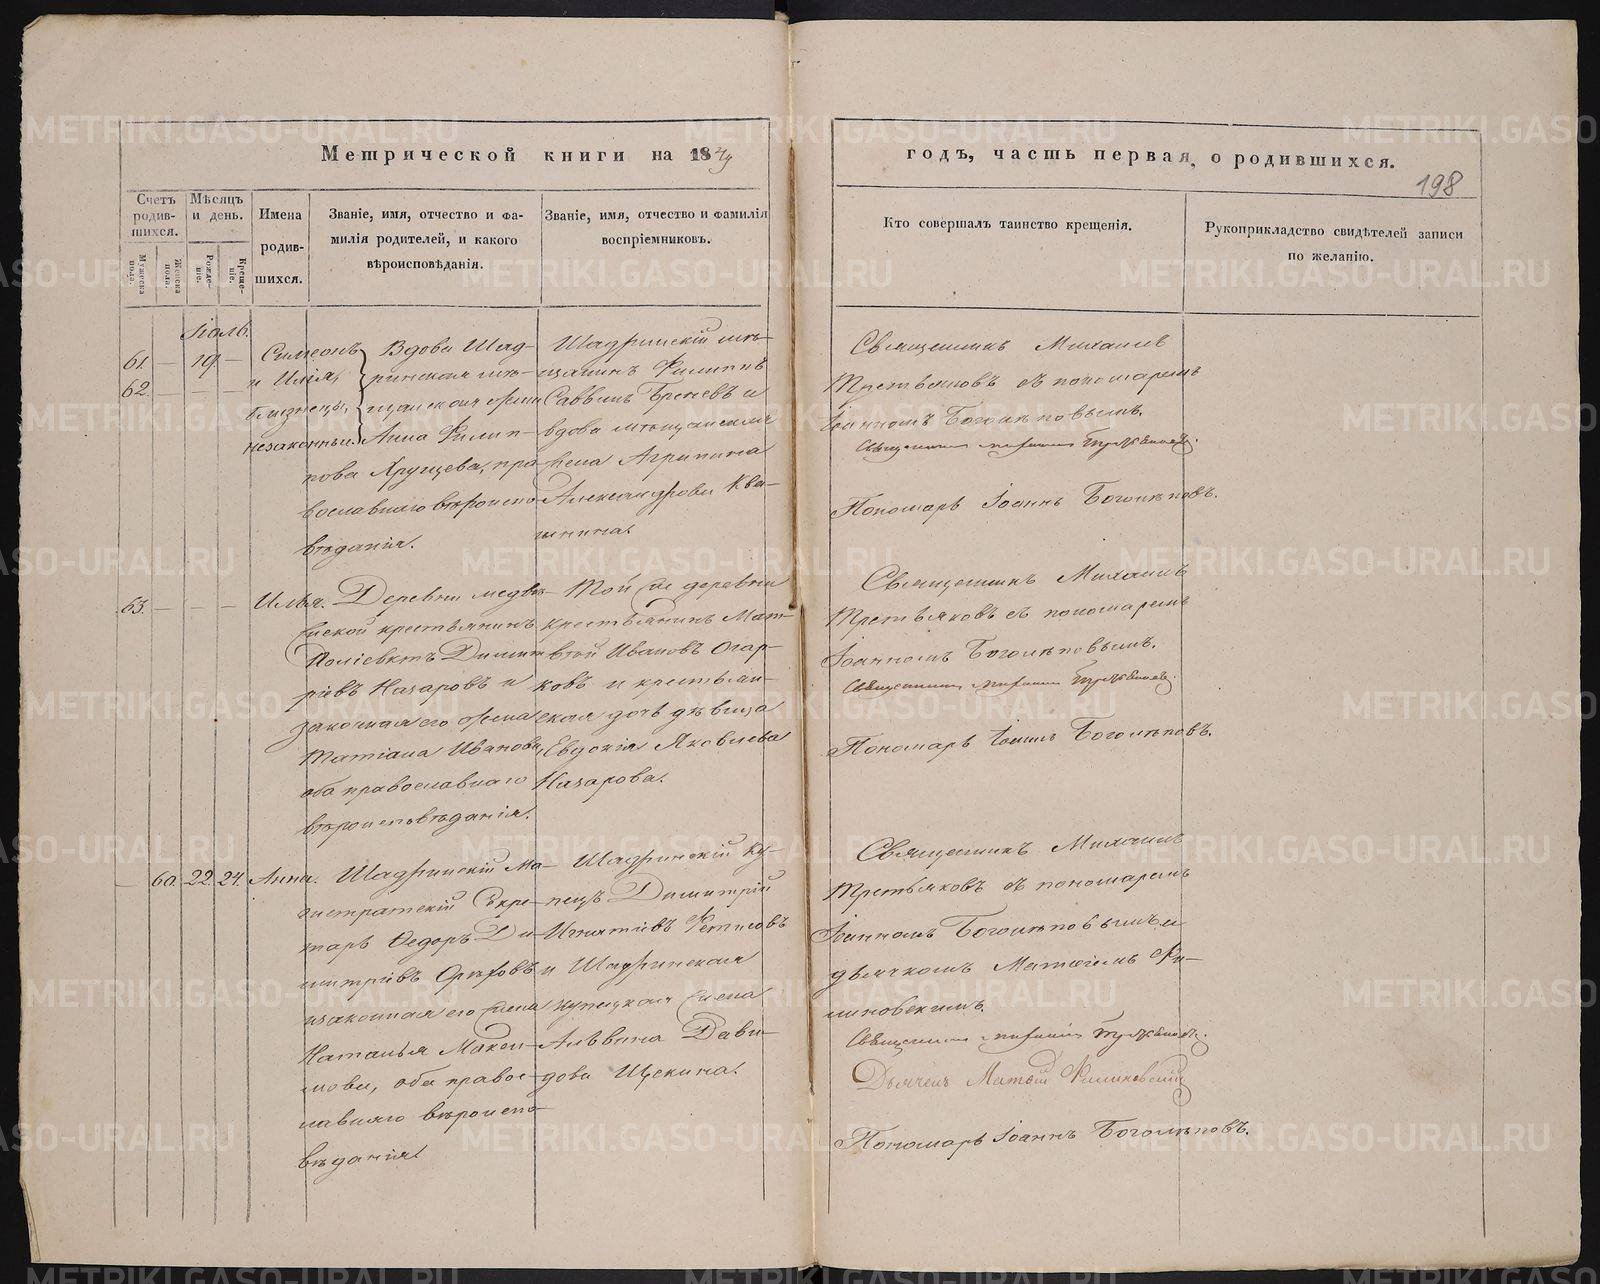 Метрической книги на 18
годъ, часть первая, о родившихся.
198
Счетъ родив-шихся.
Мѣсяцъ и день.
Имена родив-шихся.
Званіе, имя, отчество и фа-
милія родителей, и какого
вѣроисповѣданія.
Званіе, имя, отчество и фамилія
воспріемниковъ.
Кто совершалъ таинство крещенія.
Рукоприкладство свидѣтелей записи
по желанію.
Мужеска пола.
Женска пола.
Рожде-ніе.
Креще-ніе.
Іюль.
61. — 19 —
62. — — —
Симеонъ
и Илія,
близнецы,
незаконны.
Вдова Шад-
ринская мѣ-
щанская жена
Анна Филип-
пова Хрущева, пра-
вославнаго вѣроиспо-
вѣданія.
Шадринскій мѣ-
щанинъ Филиппъ
Саввинъ и
вдова мѣщанская
жена Агрипина
Александрова Ква-
шнина.
Священникъ Михаилъ
Третьяковъ съ пономаремъ
Іоанномъ Боголѣповымъ.
Священникъ Михаилъ Третьяковъ.
Пономарь Іоаннъ Боголѣповъ.
63. — — —
Илья.
Деревни Медвѣ-
жской крестьянинъ
Поліевктъ Димит-
ріевъ Назаровъ и
законная его жена
Татіана Иванова,
оба православнаго
вѣроисповѣданія.
Той же деревни
крестьянинъ Мат-
вѣй Ивановъ Огар-
ковъ и крестьян-
ская дочь дѣвица
Евдокія Яковлева
Назарова.
Священникъ Михаилъ
Третьяковъ съ пономаремъ
Іоанномъ Боголѣповымъ.
Священникъ Михаилъ Третьяковъ.
Пономарь Іоаннъ Боголѣповъ.
— 60. 22. 24.
Анна.
Шадринскій Ма-
гистратскій Секре-
тарь Ѳедоръ Ди-
митріевъ Орѣховъ
и законная его жена
Наталья Макси-
мова, оба правос-
лавнаго вѣроиспо-
вѣданія.
Шадринскій ку-
пецъ Димитрій
Игнатіевъ Фетисовъ
и Шадринская
купецкая жена
Альвина Дави-
дова Щекина.
Священникъ Михаилъ
Третьяковъ съ пономаремъ
Іоанномъ Боголѣповымъ и
дьячкомъ Матѳіемъ Фи-
линовскимъ.
Священникъ Михаилъ Третьяковъ.
Дьячекъ Матѳій Филиновскій
Пономарь Іоаннъ Боголѣповъ.
METRIKI.GASO-URAL.RU